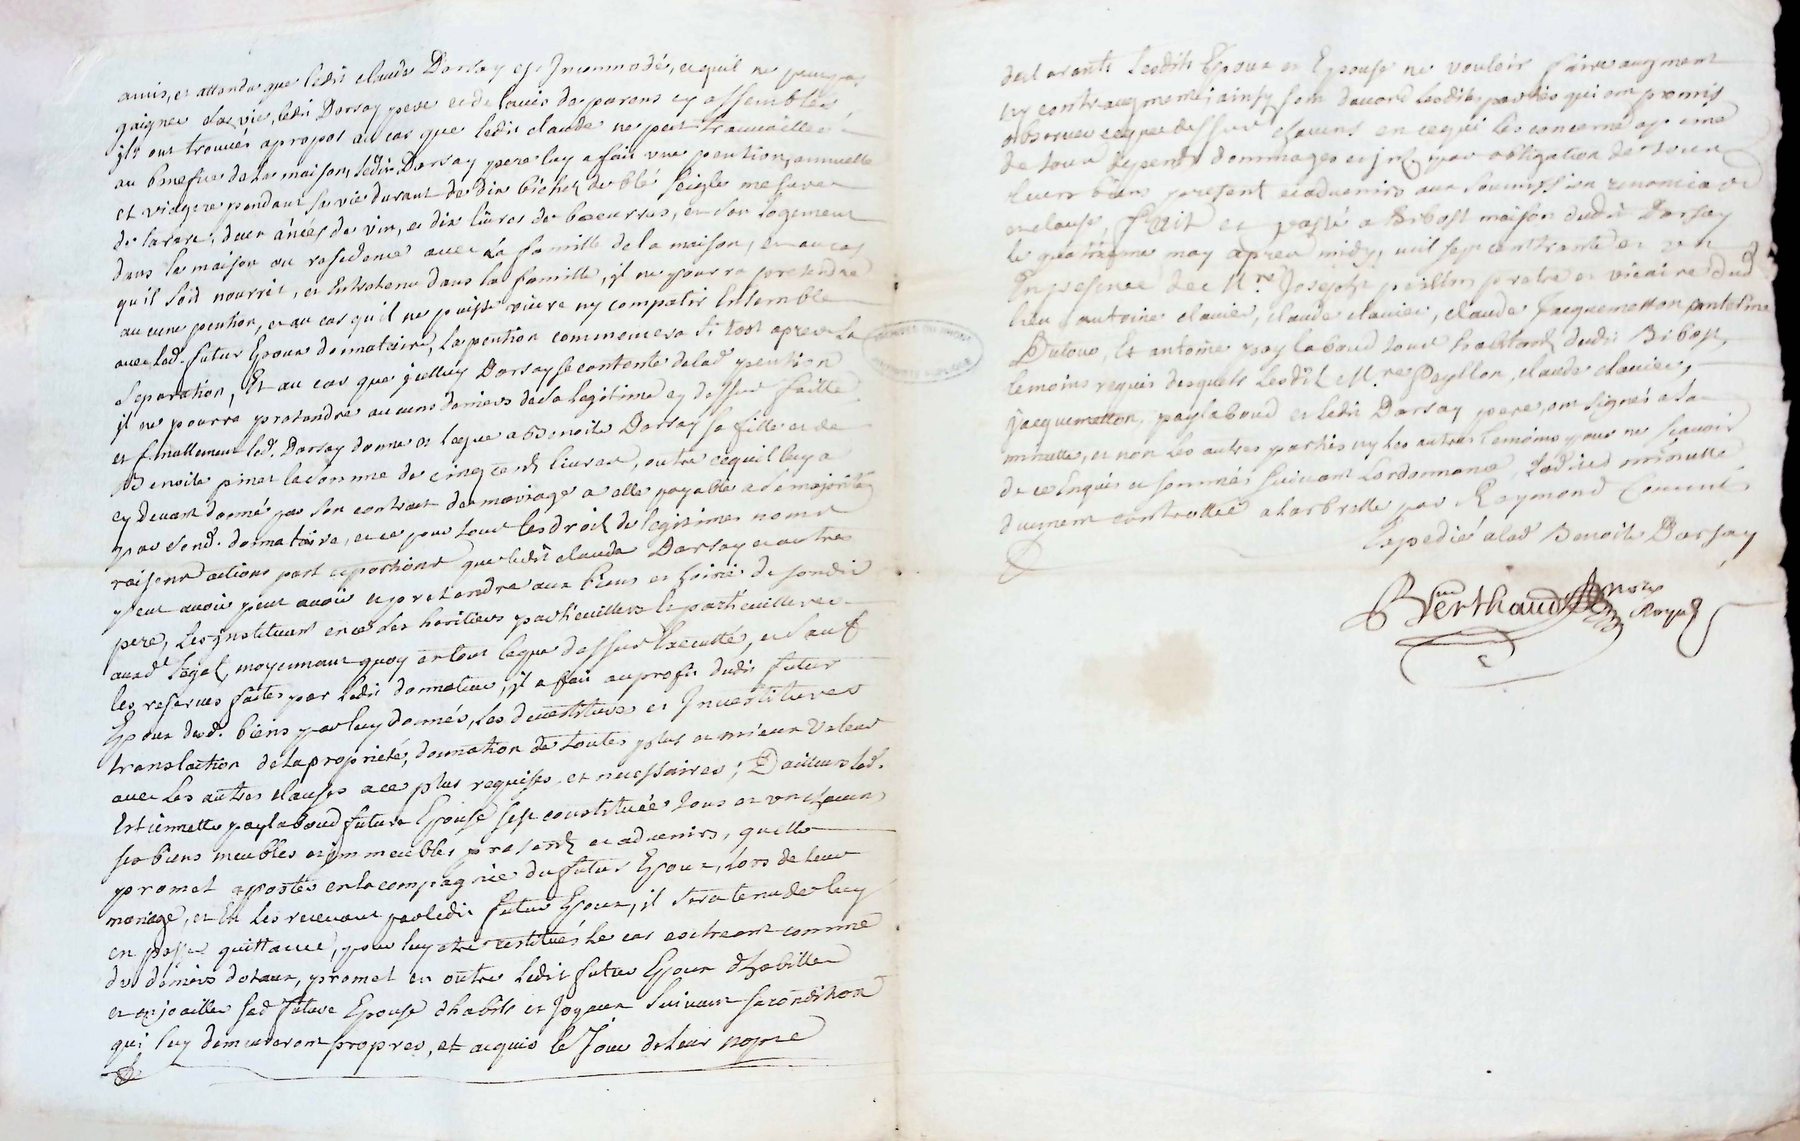 amis, et attendu que ledit claude Dorsay est Incommodé, et quil ne peut pas
gaigner sa vie, ledit Dorsay pere et de lavis de parens cy assemblés
ils ont trouvés apropos au cas que ledit claude ne peut travailler
au benefice de la maison, ledit Dorsay pere luy a fait une pention annuelle
et viagere pendant sa vie durant de dix bichets de blé seigle mesure
de larare, deux anées de vin, et dix livres de beurre, et son logement
dans la maison ou residence avec la famille de la maison, et au cas
quil soit nourrit, et Entretenu dans la famille, il ne pourra pretendre
aucune pention, et au cas quil ne puisse vivre ny compatir Ensemble
avec led. futur Epoux donnataire, la pention commencera si tost apres la
separation, Et au cas que jcelluy Dorsay se contente de lad pention
il ne pourra pretendre aucuns deniers de la legitime cy dessus faitte
et finallement led. Dorsay donne et legue a Benoite Dorsay sa fille et de
Benoite pinet la somme de cinq cents livres, outre cequil luy a
cy devant donné par son contrat de mariage a elle payable a sa majorité
par sond. donnataire, et ce pour tous les droits de legitimes noms
raisons actions part et portions que ledit claude Dorsay et autres
peut avoir peut avoir et pretendre aux biens et hoirie de sondit
pere, les instituant en ce ses heritiers particulliers le particulliere
auxd legats, moyennant quoy et tout ceque dessus Executté, et sauf
les reserves faites par ledit donnateur, il a fait au profit dudit futur
Epoux desd. biens par luy donnés, les devestitures et Investitures
translaction de la proprieté, donnation de toutes plus et mieux valeur
avec les autres clauses a ce plus requises et necessaires; Dailleurs lad.
Estiennette paylaboud future Epouse sest constituée tous et un chacuns
ses biens meubles et jmmeubles presents et advenirs, quelle
promet aporter en la compagnie du futur Epoux, lors de leur
mariage, et En les recevant par ledit futur Epoux, il sera tenu de luy
en passer quittance, pour luy etre restitués le cas echeant comme
de deniers dotaux, promet en outre ledit futur Epoux dhabiller
et enjoailler sad future Epouse dhabits et joyaux suivant sa condition
qui luy demeureront propres, et acquis le Jour de leur nopce
declarants lesdits Epoux et Epouse ne vouloir faire augment
ny contraugment; ainsy sont daccord lesdites parties qui ont promis
observer ceque dessus chacuns en cequi les concerne a peine
de tous depends dommages et jnts par obligation de tous
leurs biens present et advenirs aux soumission renonciaon
et clause, Fait et passé a Bibost maison dudit Dorsay
le quatrieme may apres midy, mil sept cent trante et un
En presence de Mre. Joseph peillon pretre et vicaire dud
lieu antoine clavier, claude clavier, claude Jacquemetton
Duloux, Et antoine paylaboud tous habitants dudit Bibost,
temoins requis desquels lesdits Mre. Peyllon, claude clavier,
jacquemetton, paylaboud et ledit Dorsay pere, ont signés a la
minutte, et non les autres parties ny les autres temoins pour ne scavoir
de ce Enquis et sommés suivant Lordonnance, ladite minutte
duement controllée a larbresle par Raymond Commis
Expedié a lad Benoite Dorsay
Berthaud Nore
Royal